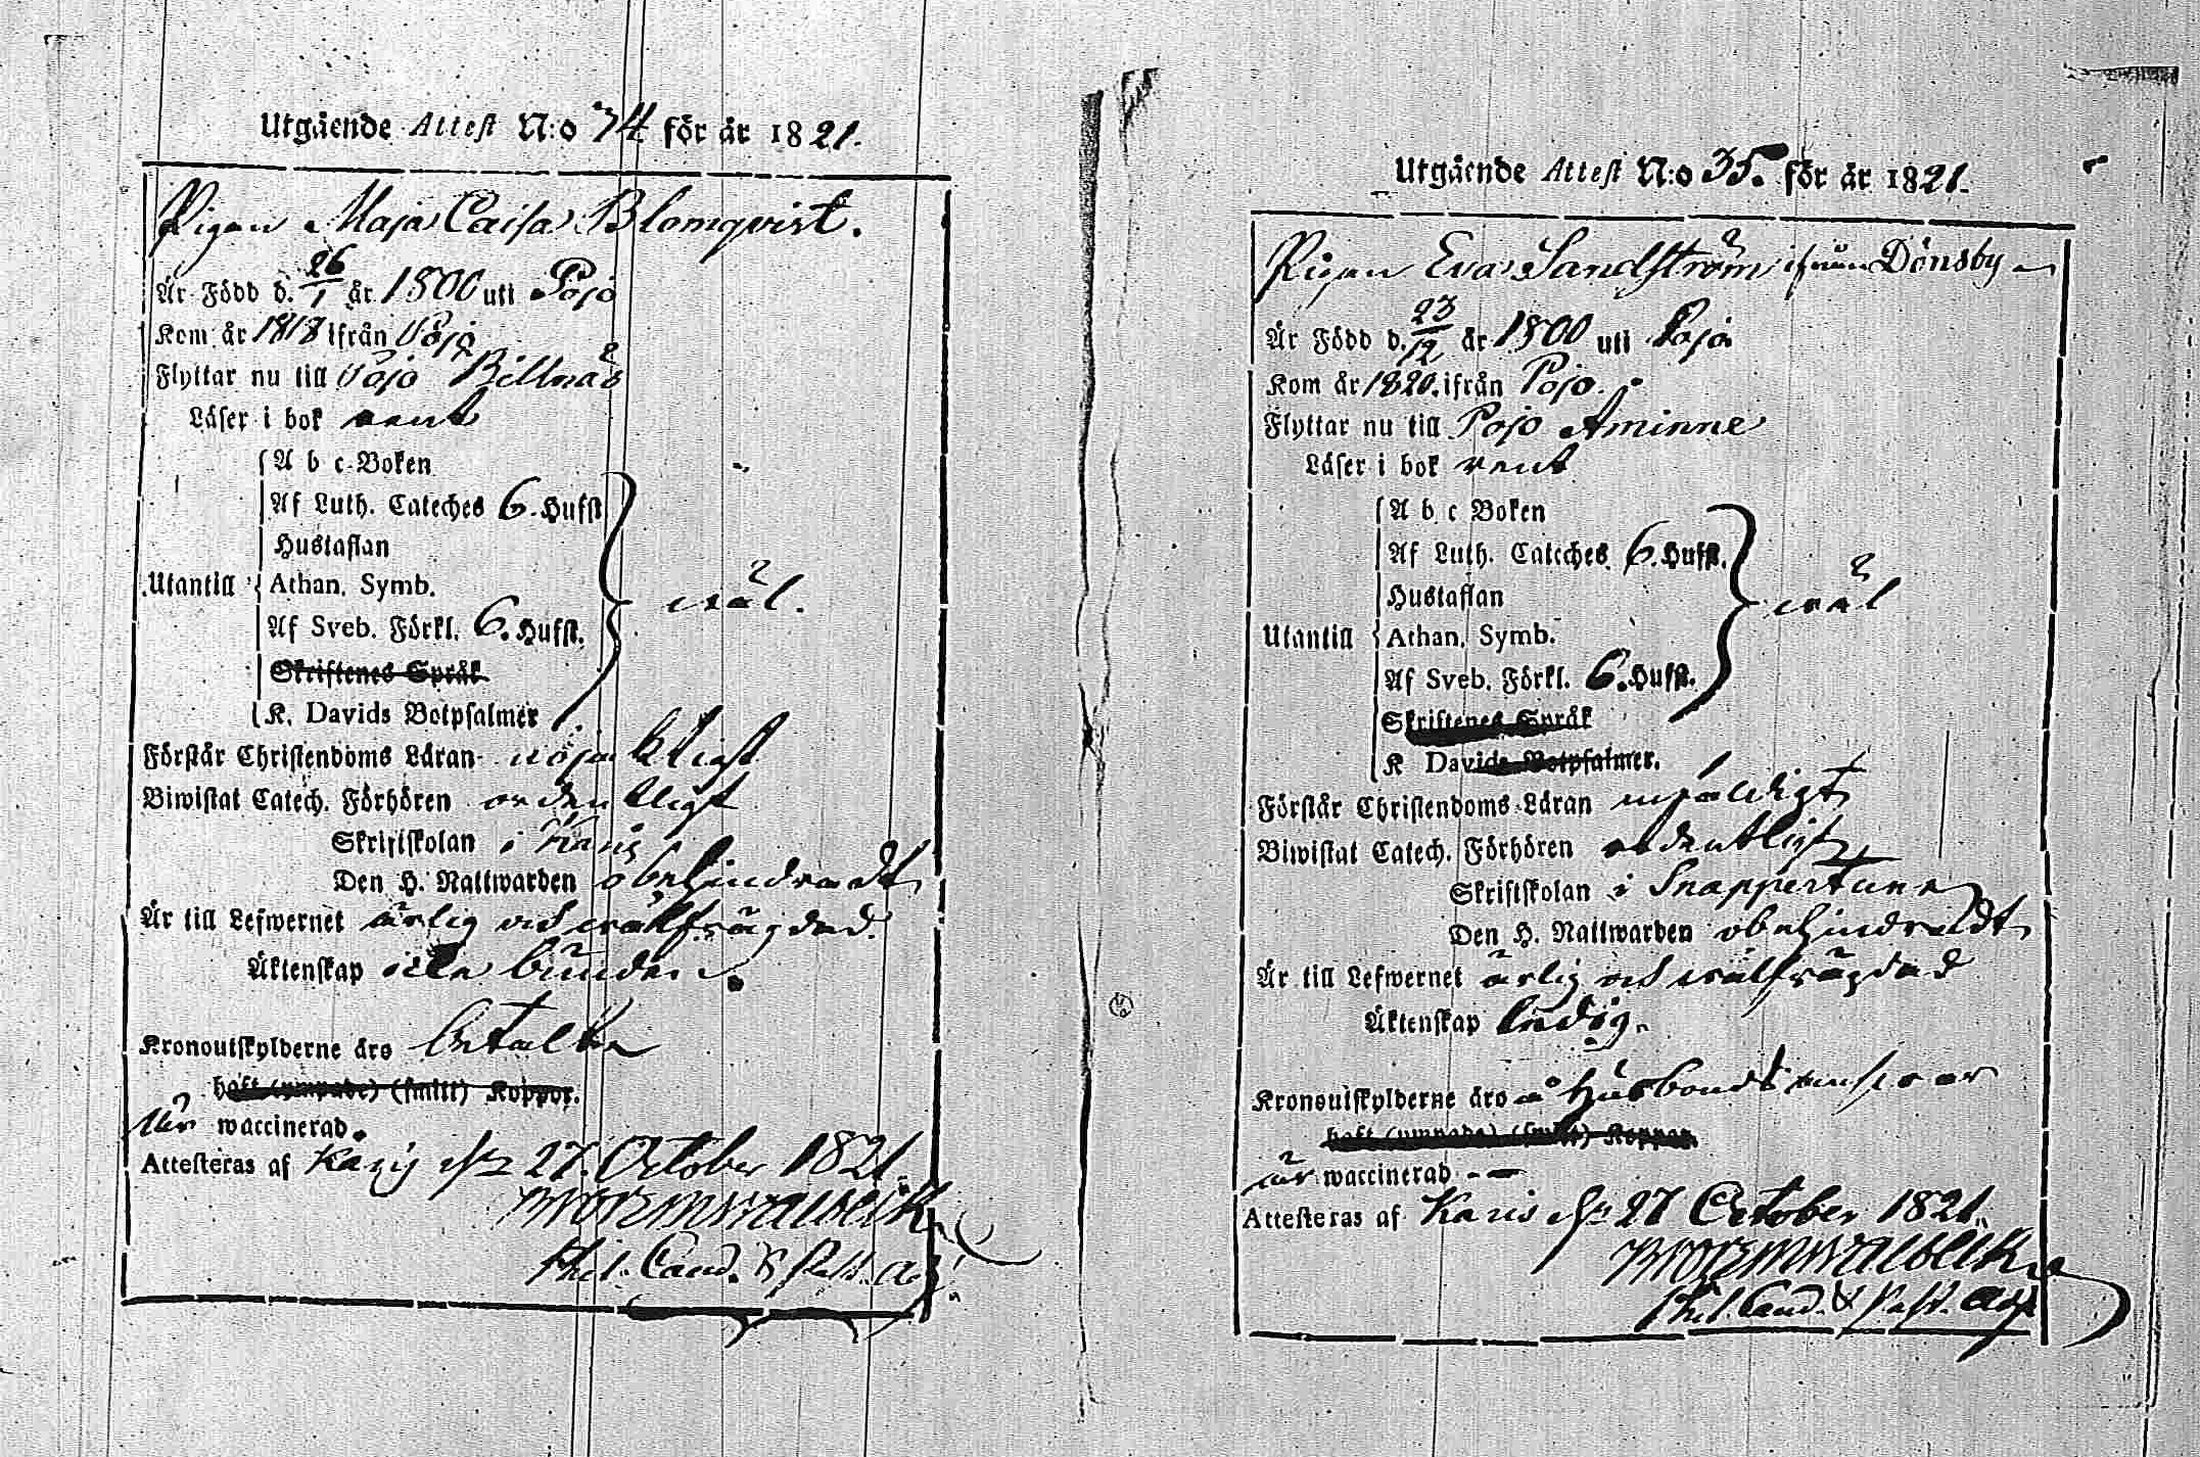 Utgående Attest N:o 34 för år 1821.
Pigan Maja Caisa Blomqvist.
Är Född d. 26/1 år 1800 uti Pojo
Kom år 1818 ifrån Pojo
Flyttar nu till Pojo Billnäs
Läser i bok rent
A b c-Boken
Af Luth. Cateches 6. Hufst
Hustaflan
Utantill Athan. Symb. wäl.
Af Sveb. Förkl. 6. Hufst.
Skriftenes Språk
K. Davids Botpsalmer
Förstår Christendoms Läran nöjaktligt
Biwistat Catech. Förhören ordentligt
Skriftskolan i Karis
Den H. Nattwarden obehindradt
Är till Lefwernet ärlig och wälfrägdad.
Äktenskap icke bunden.
Kronoutskylderne äro betalta
haft (ympade) (smitt) Koppor.
Är waccinerad.
Attesteras af Karis den 27. October 1821.
Phil. Cand. & Past. Adj.
Utgående Attest N:o 35. för år 1821.
Pigan Eva Sandström ifrån Dönsby
Är Född d. 23/12 år 1800 uti Pojo
Kom år 1820. ifrån Pojo.
Flyttar nu till Pojo Åminne
Läser i bok rent
A b c Boken
Af Luth. Cateches 6. Hufst.
Hustaflan
Utantill Athan. Symb. wäl
Af Sveb. Förkl. 6. Hufst.
Skriftenes Språk
K Davids Botpsalmer.
Förstår Christendoms Läran
Biwistat Catech. Förhören ordentligt
Skriftskolan i Snappertuna
Den H. Nattwarden obehindradt
Är till Lefwernet ärlig och wälfrägdad
Äktenskap ledig.
Kronoutskylderne äro å Husbondens answar
haft (ympade) (smitt) Koppor.
är waccinerad
Attesteras af Karis den 27 October 1821.
Phil. Cand. & Past. Adj.